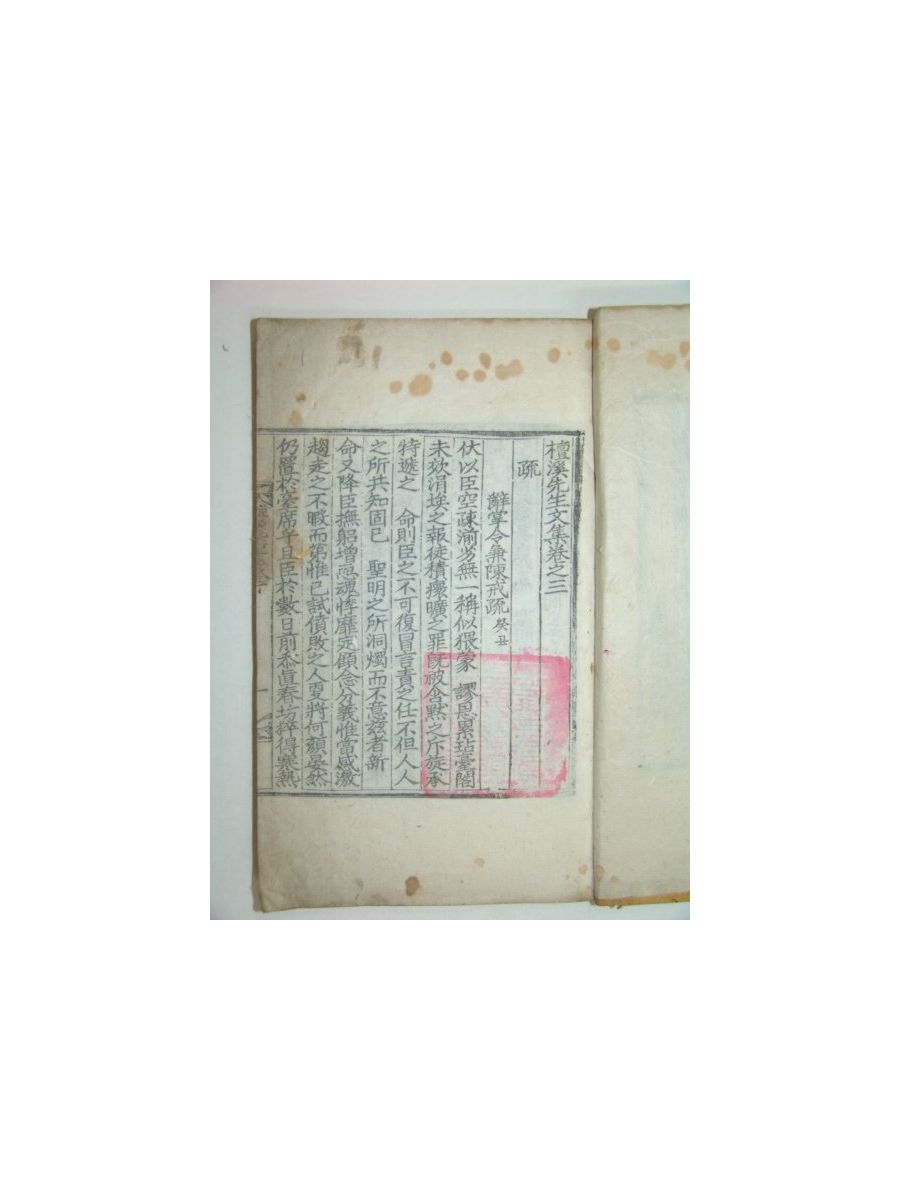 檀溪先生文集卷之三
疏
辭掌令兼陳戒疏 癸丑
伏以臣空疎淪劣無一稱似猥蒙 謬恩累玷臺閣
未效涓埃之報徒積瘝曠之罪旣被含默之斥旋承
特遞之 命則臣之不可復冒言責之任不但人人
之所共知固已 聖明之所洞燭而不意玆者新
命又降臣撫躬增恧魂悸靡定顧念分義惟當感激
趨走之不暇而第惟已試僨敗之人更將何顔晏然
仍置於臺席乎且臣於數日前忝直春坊猝得寒熱